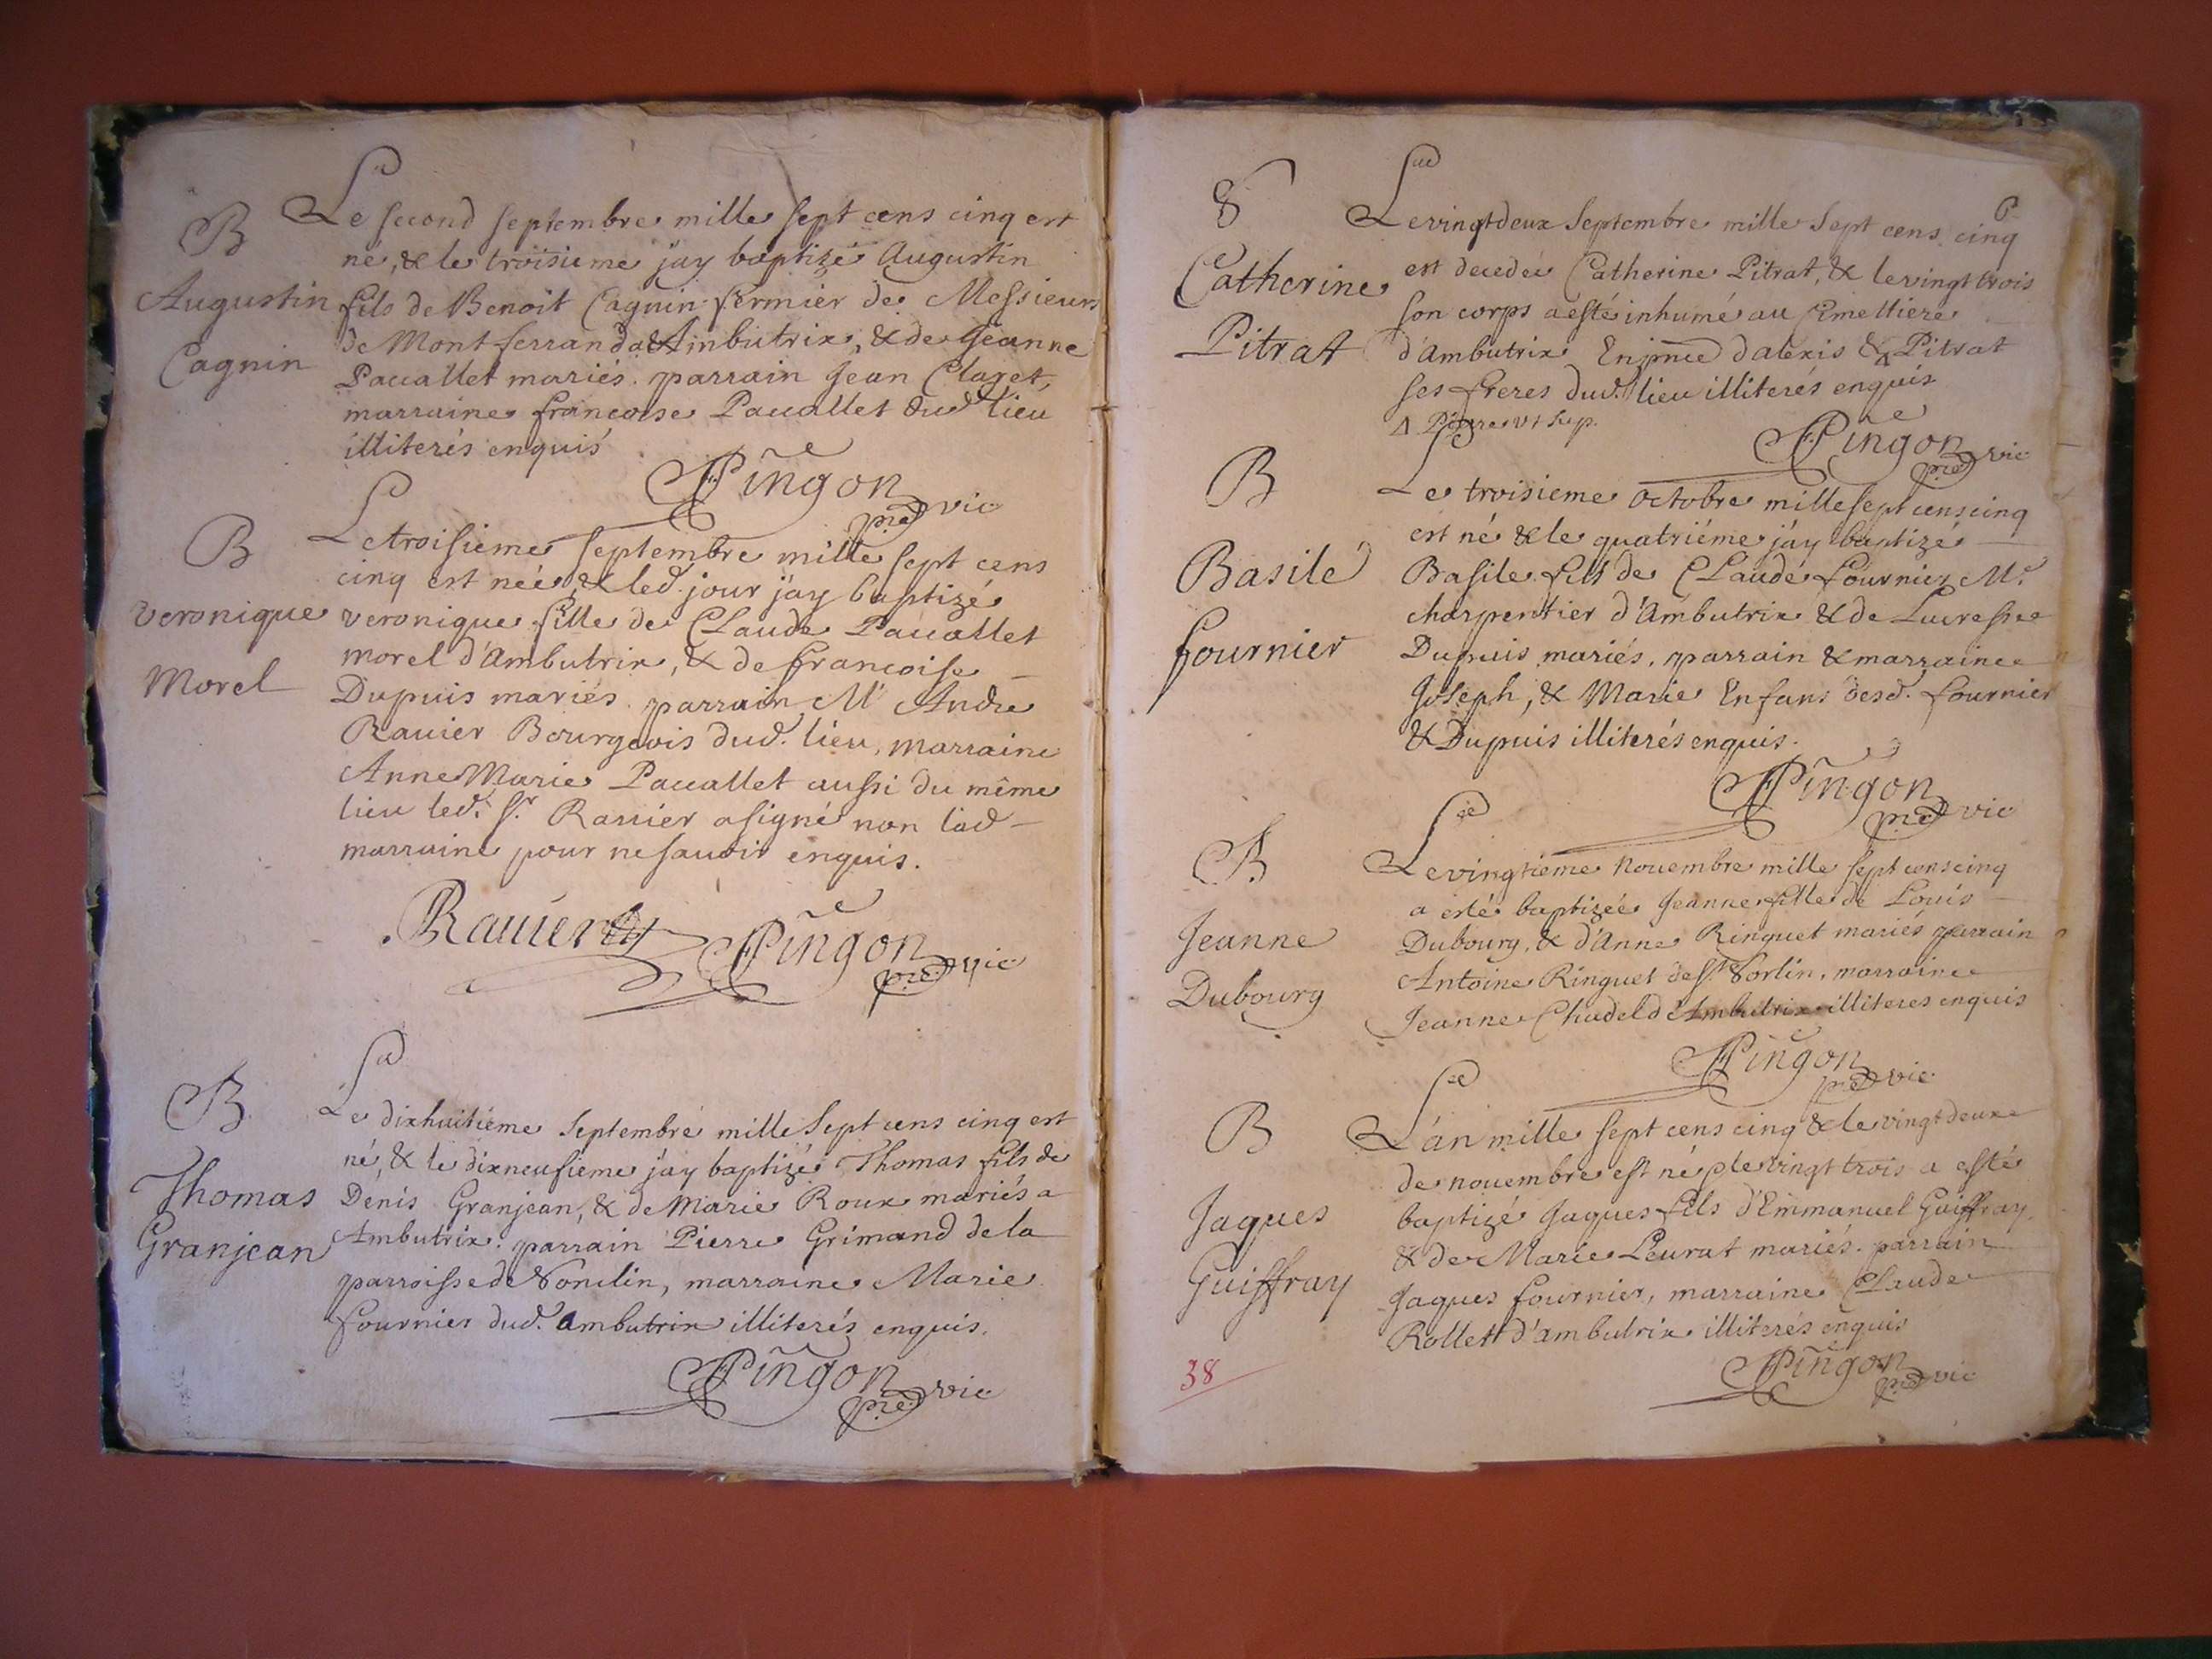 B
Augustin
Cagnin
Le second septembre mille sept cens cinq est
né, & le troisieme jay baptizé Augustin
fils de Benoit Cagnin fermier de Messieurs
de Montferrand Ambutrix, & de Jeanne
Pauallet mariés. parrain Jean Claret,
marraine francoise Pauallet dud. lieu
illiterés enquis
Pingon
pre vic
B
veronique
Morel
Le troisieme septembre mille sept cens
cinq est née, & led. jour jay baptizé
veronique fille de Claude Pauallet
morel d'Ambutrix, & de francoise
Dupuis mariés. parrain Mr Andre
Rauier Bourgeois dud. lieu, marraine
Anne Marie Pauallet aussi du même
lieu led. Sr. Rauier a signé non lad
marraine pour ne sauoir enquis.
Rauier
Pingon
pre vic
B
Thomas
Granjean
Le dixhuitiéme septembre mille sept cens cinq est
né, & le dixneufieme jay baptizé Thomas fils de
Denis Granjean, & de Marie Roux mariés a
Ambutrix. parrain Pierre Grimand de la
parroisse de, marraine Marie
fournier dud. ambutrix illiterés enquis.
Pingon
pre vic
6
8
Catherine
Pitrat
Le vingtdeux septembre mille sept cens cinq
est decedée Catherine Pitrat, & le vingt trois
son corps a esté inhumé au Cimettiere
d'Ambutrix En pnce d'alexis & Δ Pitrat
ses freres dud. lieu illiterés enquis
Δ Pierre vt sup.
Pingon
pre vic
B
Basile
fournier
Le troisieme octobre mille sept cens cinq
est né & le quatriéme jáy baptizé
Basile fils de Claude fournier Me.
charpentier d'Ambutrix & de Lucresse
Dupuis mariés. parrain & marraine
Joseph, & Marie Enfans desd. fournier
& Dupuis illiterés enquis.
Pingon
pre vic
B
Jeanne
Dubourg
Le vingtieme nouembre mille sept cens cinq
a esté baptizée Jeanne fille de Louis
Dubourg, & d'Anne Ringuet mariés parrain
Antoine Ringuet de St. Sorlin, marraine
Jeanne Chudel d'Ambutrix illiteres enquis
Pingon
pre vic
B
Jaques
Guiffray
L'an mille sept cens cinq & le vingtdeux
de nouembre est né & le vingt trois a esté
baptizé Jaques fils d'Emmanuel Guiffray
& de Marie Peurat mariés. parrain
Jaques fournier, marraine Claude
Rollet d'ambutrix illiterés enquis
Pingon
pre vic
38